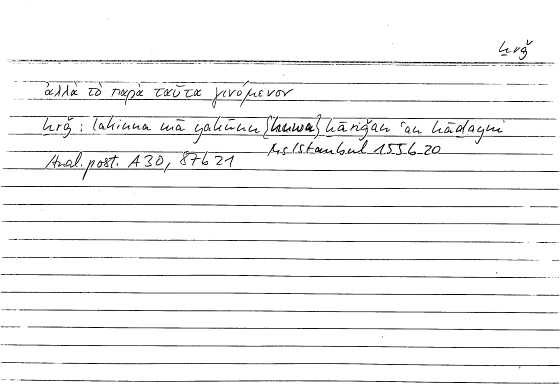 ḫrǧ
ἀλλὰ τὸ παρὰ ταῦτα γινόμενον
ḫrǧ : lākinna mā yakūnu {huwa} ḫāriǧan ʿan hāḏayni
Ms Istanbul 155b20
Anal. post. A 30, 87b21